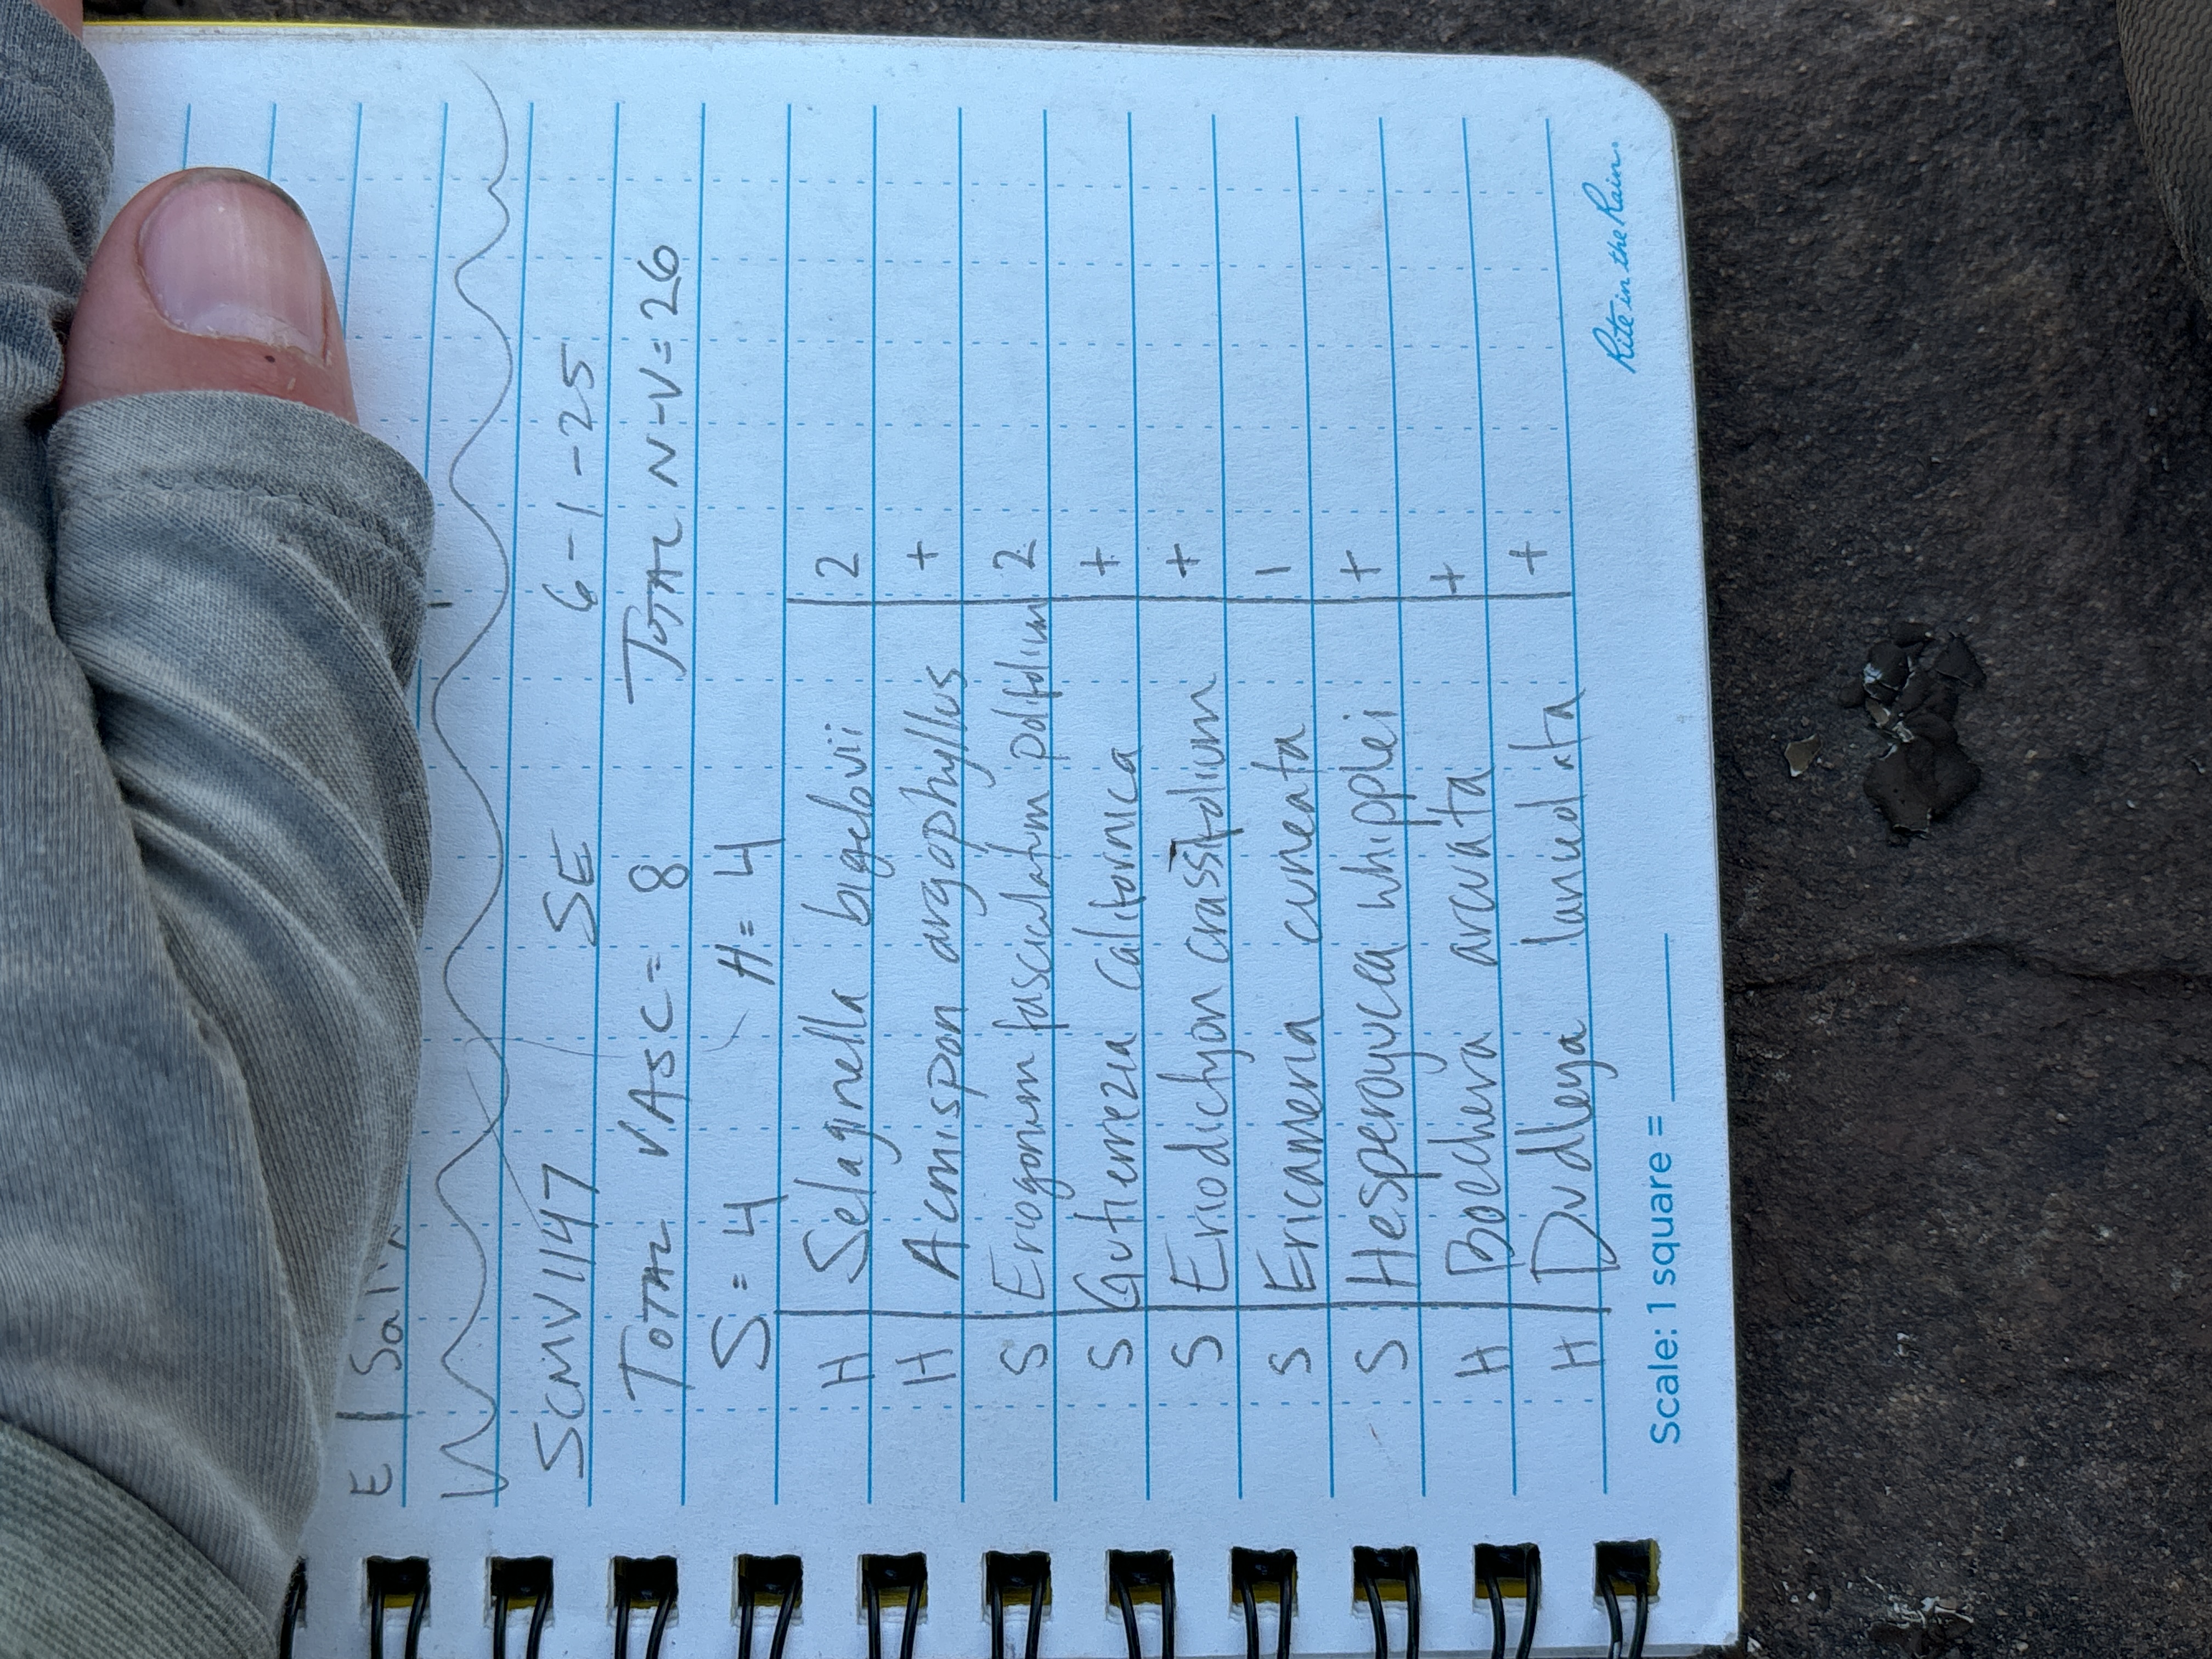 E | Sal
SCMV1147 SE 6-1-25
TOTAL VASC = 8 TOTAL N-V = 26
S = 4 H = 4
H Selaginella bigelovii 2
H Acmispon argophyllus +
S Eriogonum fasciculatum polifolium 2
S Gutierrezia californica +
S Eriodictyon crassifolium +
S Ericameria cuneata 1
S Hesperoyucca whipplei +
H Boechera arcuata +
H Dudleya lanceolata +
Scale: 1 square = ____ Rite in the Rain.